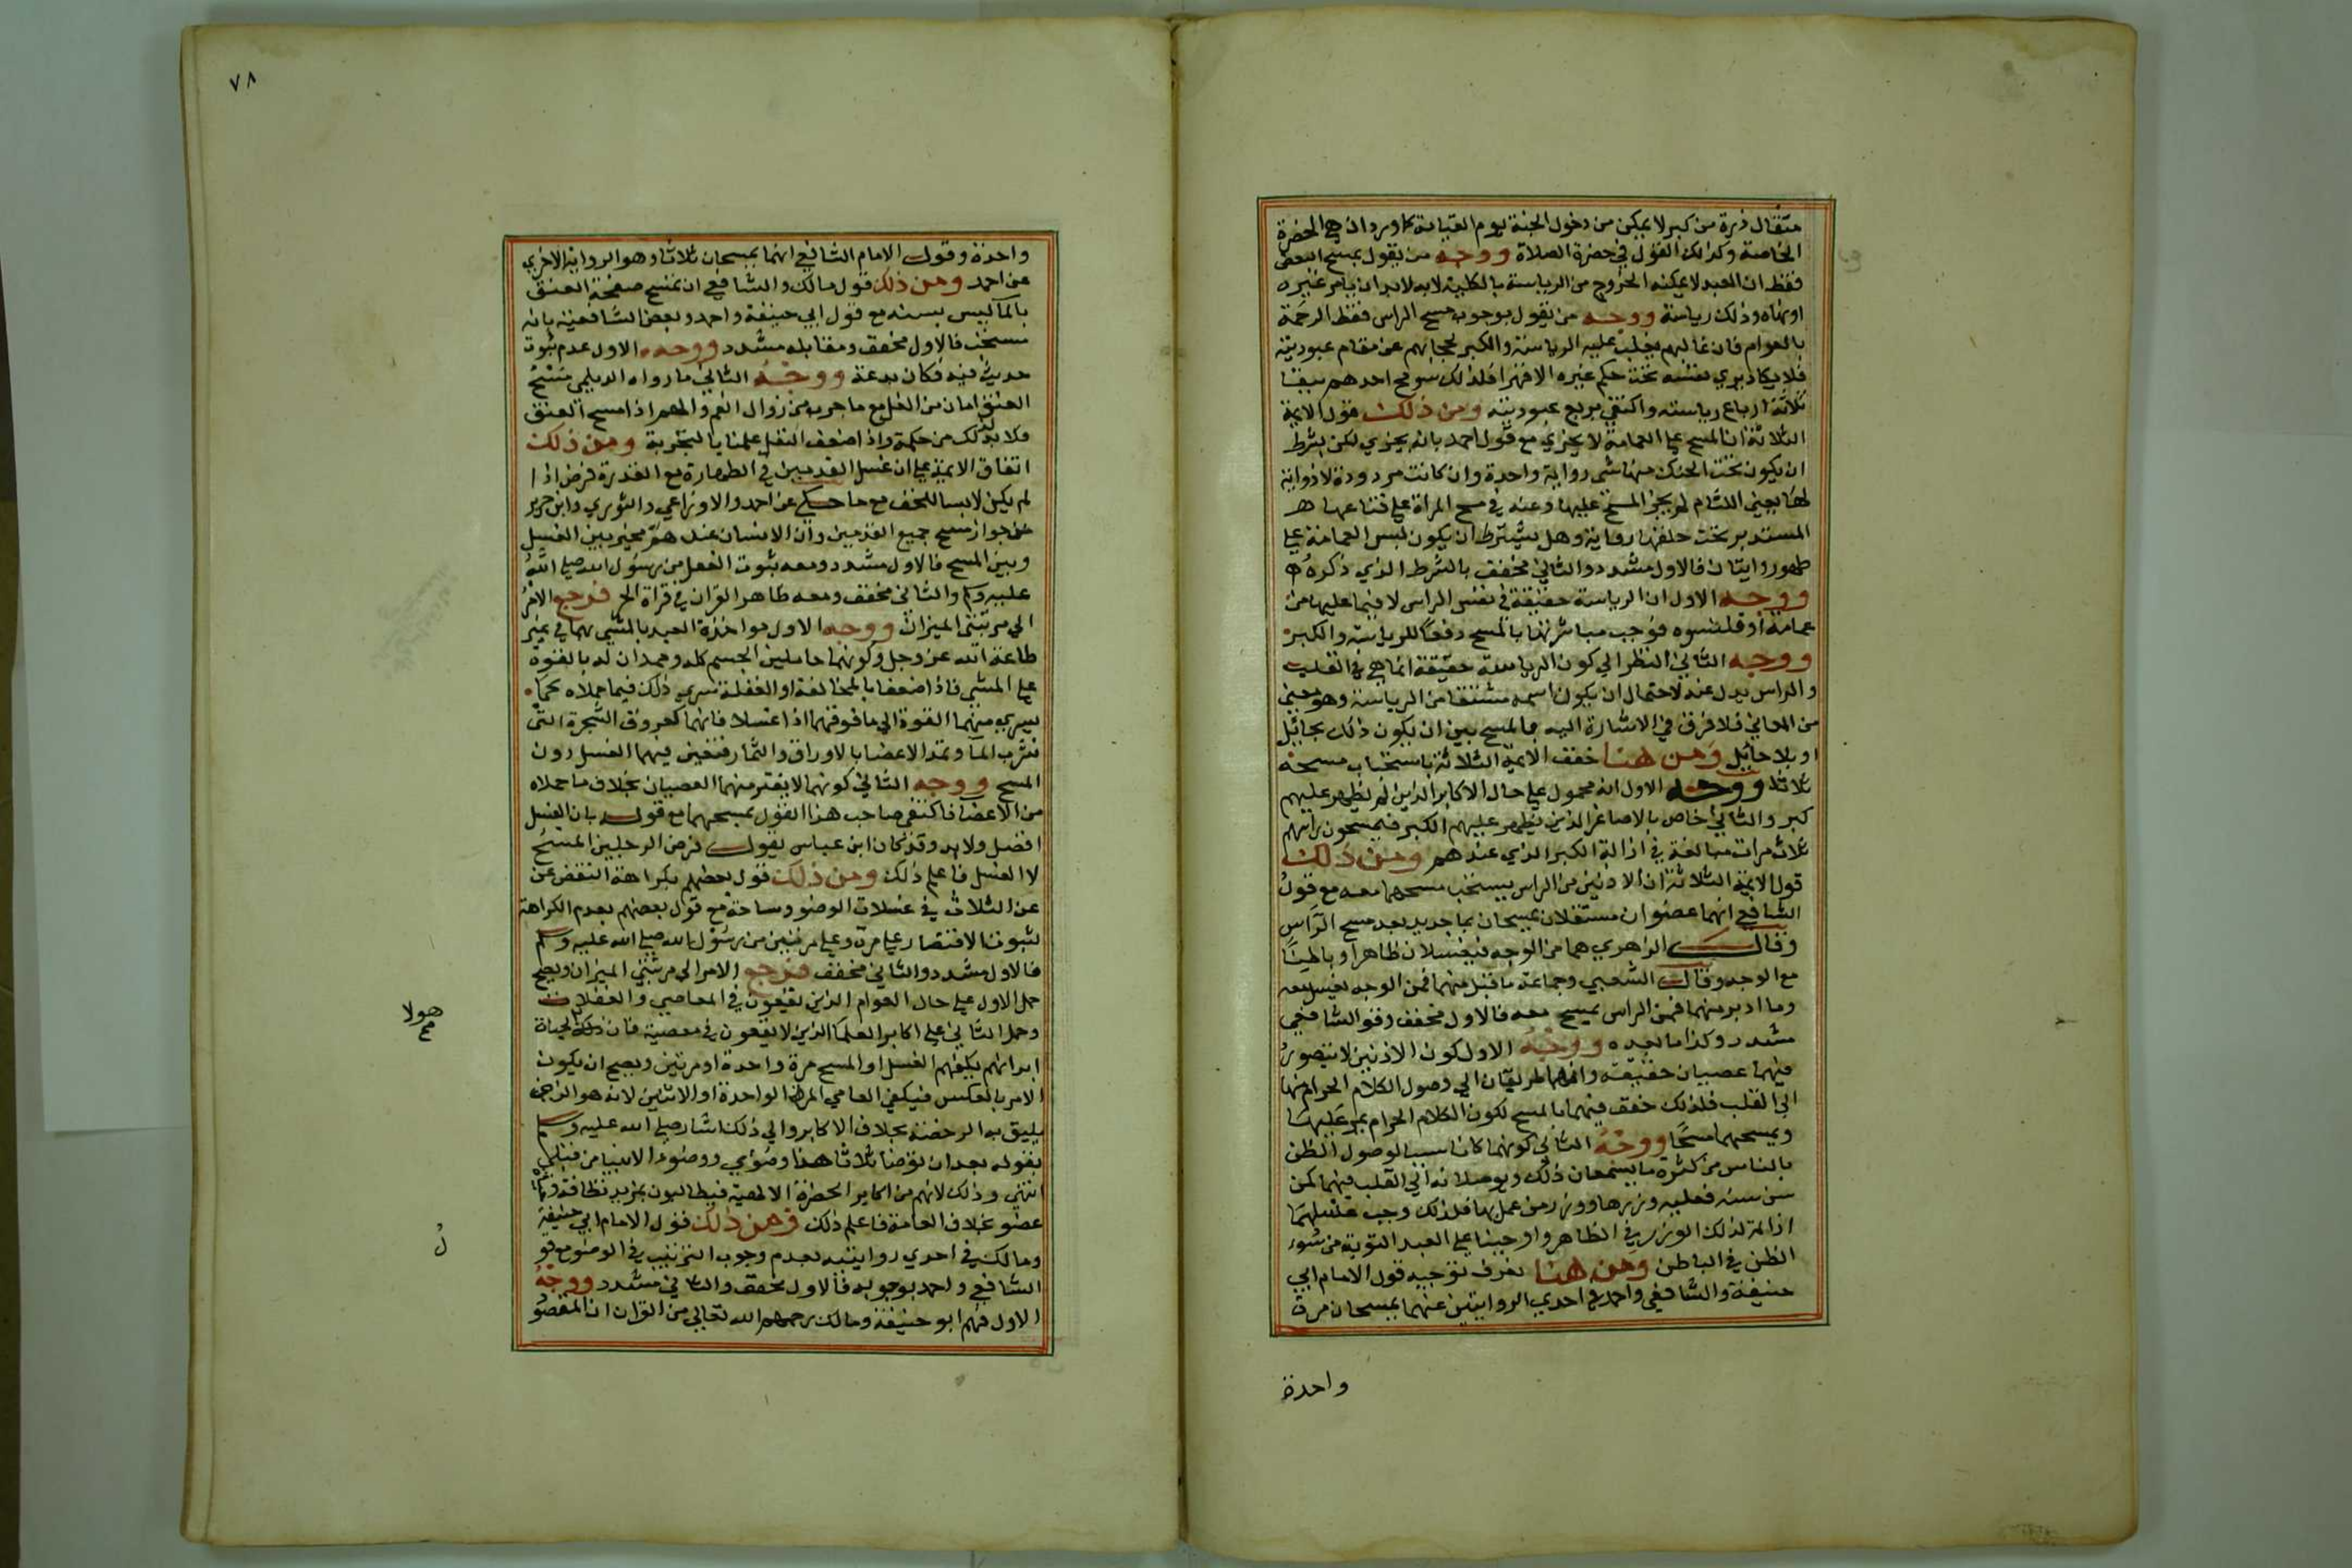 مثقال ذرة من كبر لا يمكن من دخول الجنة يوم القيامة كما ورد اذ هي الحضرة
الخاصة وكذلك القول في حضرة الصلاة ووجه من يقول بمسح البعض
فقط ان العبد لا يمكنه الخروج من الرياسة بالكلية لانه لابد ان يامر غيره
او ينهاه وذلك رياسة ووجه من يقول بوجوب مسح الراس فقط الرحمة
بالعوام فان غالبهم يغلب عليه الرياسة والكبر لحجابهم عن مقام عبوديته
فلا يكاد يري نفسه تحت حكم غيره الا قهرا فلذلك سومح احدهم ببقا
ثلاثة ارباع رياسته واكتفي بربع عبوديته ومن ذلك قول الايمة
الثلاثة ان المسح علي العمامة لا يجزي مع قول احمد بانه يجزي لكن بشرط
ان يكون تحت الحنك منها شي رواية واحدة وان كانت مدورة لا ذوابة
لها يعني اللثام لم يجز المسح عليها وعنه في مسح المراة علي قناعها
المستدير تحت حلقها رواية وهل يشترط ان يكون لبس العمامة علي
طهور روايتان فالاول مشدد والثاني مخفف بالشرط الذي ذكره
ووجه الاول ان الرياسة حقيقة في نفس الراس لا فيما عليها من
عمامة او قلنسوه فوجب مباشرتها بالمسح دفعا للرياسة والكبر
ووجه الثاني النظر الي كون الرياسة حقيقة انما هي في القلب
والراس يدل عنه لاحتمال ان يكون اسمه مشتقا من الرياسة وهو معني
من المعاني فلا فرق في الاشارة اليه بالمسح بين ان يكون ذلك بحائل
او بلا حائل ومن هنا خفف الايمة الثلاثة باستحباب مسحه
ثلاثا ووجه الاول انه محمول علي حال الاكابر الذين لم يظهر عليهم
كبر والثاني خاص بالاصاغر الذين يظهر عليهم الكبر فيمسحون راسهم
ثلاث مرات مبالغة في ازالة الكبر الذي عندهم ومن ذلك
قول الايمة الثلاثة ان الاذنين من الراس يستحب مسحهما معه مع قول
الشافعي انهما عضوان مستقلان يمسحان بما جديد بعد مسح الراس
وقال الزهري هما من الوجه فيغسلان ظاهرا وباطنا
مع الوجه وقال الشعبي وجماعة ما قبل منهما فمن الوجه يغسل معه
وما ادبر منهما فمن الراس يمسح معه فالاول مخفف وقول الشافعي
مشدد وكذا ما بعده ووجه الاول كون الاذنين لا يتصور
فيهما عصيان حقيقة وانما هما طريقان الي وصول الكلام الحرام منها
الي القلب فلذلك خفف فيهما بالمسح لكون الكلام الحرام يمر عليهما
ويمسحهما مسحا ووجه الثاني كونهما كانا سببا لوصول الظن
بالناس من كثرة ما يسمعان ذلك ويوصلانه الي القلب فهما كمن
سن سنة فعليه وزرها ووزر من عمل بها فلذلك وجب غسلهما
ازالة لذلك الوزر في الظاهر واوجبنا علي العبد التوبة من سوء
الظن في الباطن ومن هنا يعرف توجيه قول الامام ابي
حنيفة والشافعي واحمد في احدي الروايتين عنهما يمسحان مرة
واحدة
٧٨
واحدة وقول الامام الشافعي انهما يمسحان ثلاثا وهو الرواية الاخري
عن احمد ومن ذلك قول مالك والشافعي ان مسح صفحة العنق
بالما ليس بسنه مع قول ابي حنيفة واحمد وبعض الشافعية بانه
مستحب فالاول مخفف ومقابله مشدد ووجه الاول عدم ثبوت
حديث فيه فكان بدعة ووجه الثاني ما رواه الديلمي مسح
العنق امان من الغل مع ما جرب من زوال الغم والهم اذا مسح العنق
فلا بد لذلك من حكمة واذا ضعف النقل عملنا بالتجربة ومن ذلك
اتفاق الايمة علي ان غسل القدمين في الطهارة مع القدرة فرض اذا
لم يكن لابسا للخف مع ما حكي عن احمد والاوزاعي والثوري وابن جرير
من جواز مسح جميع القدمين وان الانسان عندهم مخير بين الغسل
وبين المسح فالاول مشدد ومعه ثبوت الفعل من رسول الله صلي الله
عليه وسلم والثاني مخفف ومعه ظاهر القران في قراة الجر فرجع الامر
الي مرتبتي الميزان ووجه الاول مواخذة العبد بالمشي بهما في غير
طاعة الله عز وجل وكونهما حاملين الجسم كله وممدان له بالقوة
علي المشي فاذا ضعفا بالمخالفة او الغفلة سري ذلك فيما حملاه كما
يسري منهما القوة الي ما فوقهما اذا غسلا فانهما كعروق الشجرة التي
تشرب الما وتمد الاعضا بالاوراق والثمار فتعين فيهما الغسل دون
المسح ووجه الثاني كونهما لا يفتر منهما العصيان بخلاف ما حملاه
من الاعضا فاكتفي صاحب هذا القول بمسحهما مع قوله بان الغسل
افضل ولابد وقد كان ابن عباس يقول فرض الرجلين المسح
لا الغسل فاعلم ذلك ومن ذلك قول بعضهم بكراهة النقص عن
عن الثلاث في غسلات الوضو وساحة مع قول بعضهم بعدم الكراهة
لثبوت الاقتصار علي مرة وعلي مرتين من رسول الله صلي الله عليه وسلم
فالاول مشدد والثاني مخفف فرجع الامر الي مرتبتي الميزان ويصح
حمل الاول علي حال العوام الذين يقعون في المعاصي والغفلات
وحمل الثاني علي اكابر العلما الذين لا يقعون في معصية فان لحياة
هولا
صح
ابدانهم يكفيهم الغسل او المسح مرة واحدة او مرتين ويصح ان يكون
الامر بالعكس فيكفي العامي المرة الواحدة او الاثنين لانه هو الذي
يليق به الرخصة بخلاف الاكابر والي ذلك اشار صلي الله عليه وسلم
بقوله بعد ان توضا ثلاثا هذا وضوي ووضوء الانبيا من قبلي
انتهي وذلك لانهم من اكابر الحضرة الالهية فيطالبون بمزيد نظافة
عضو بخلاف العامة فاعلم ذلك ومن ذلك قول الامام ابي حنيفة
ومالك في احدي روايتيه بعدم وجوب الترتيب في الوضو مع قو
ل
الشافعي واحمد بوجوبه فالاول مخفف والثاني مشدد ووجه
الاول فهم ابو حنيفة ومالك رحمهم الله تعالي من القران ان المقصو